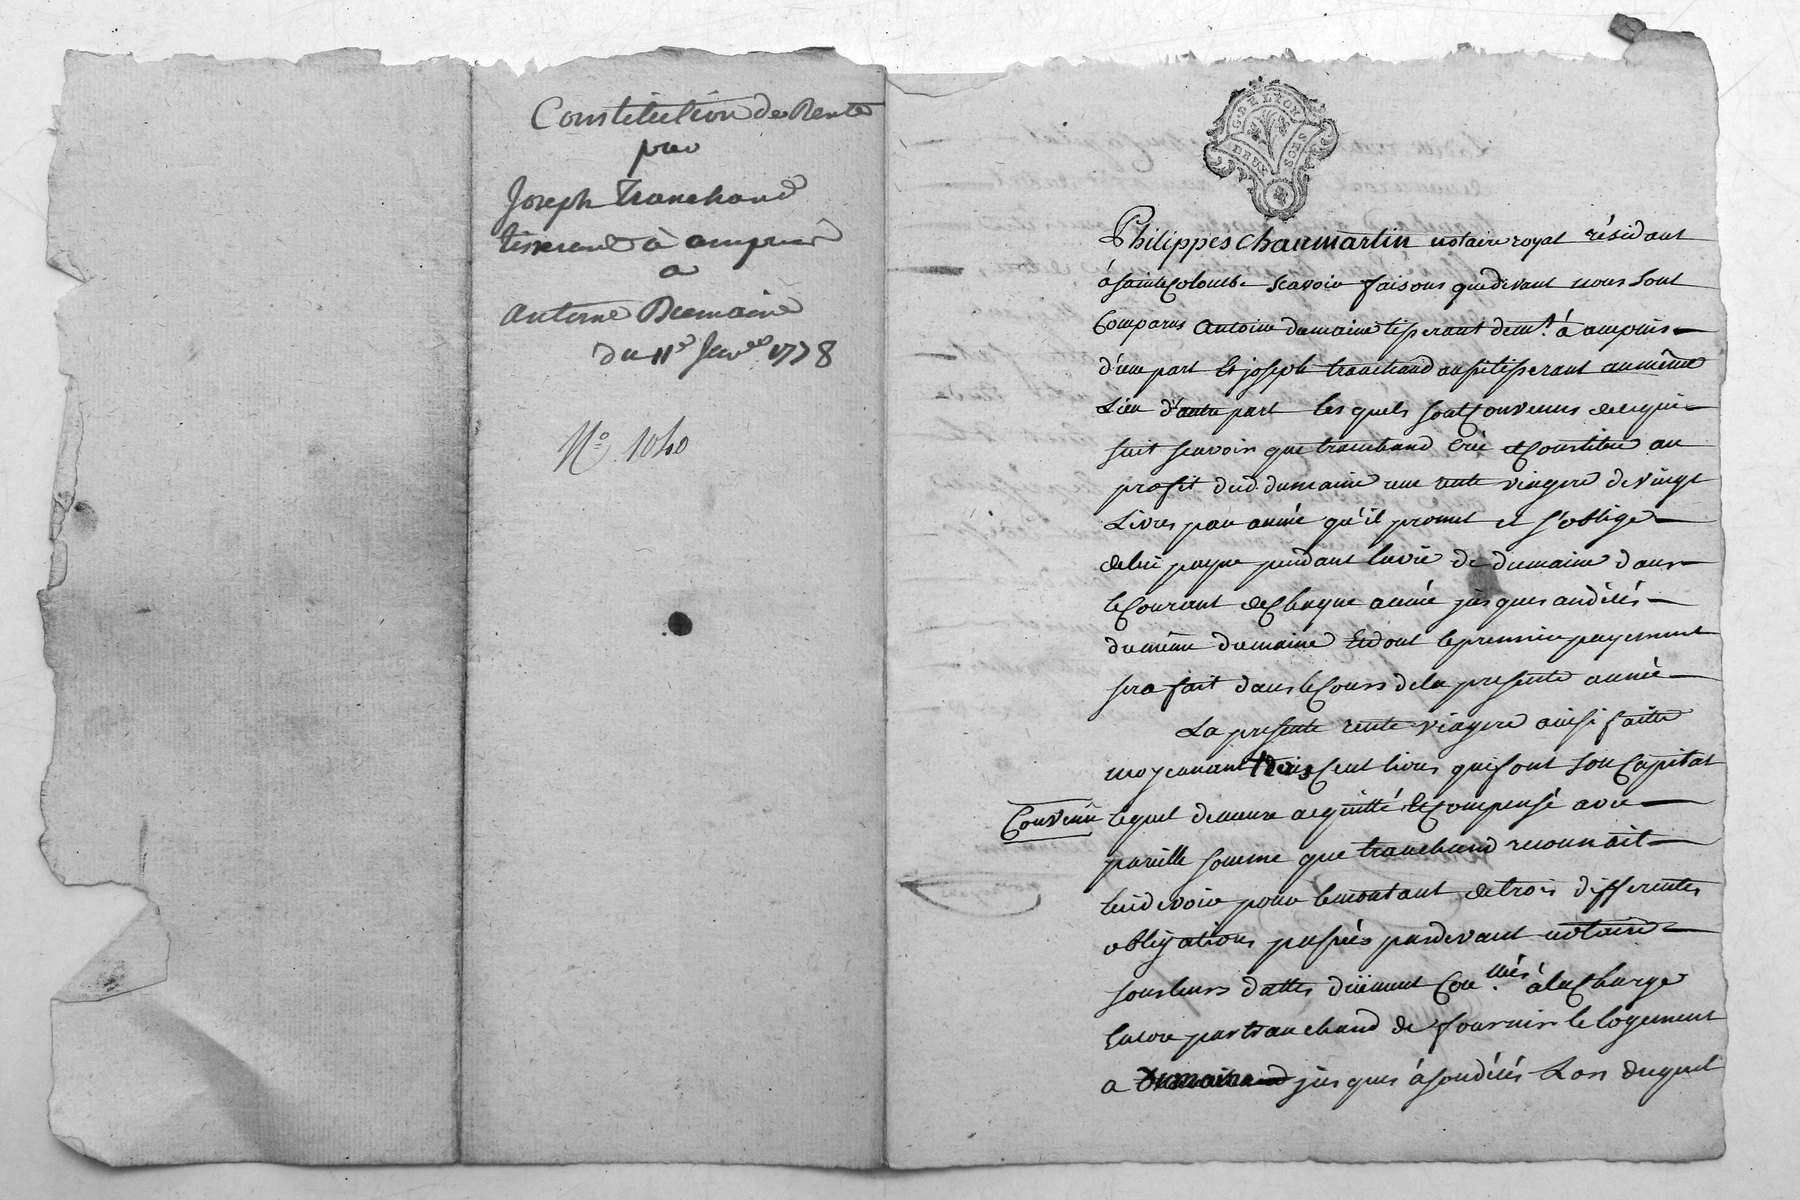 Constitution de Rente
par
Joseph Tranchand
tisserand à ampuis
a
Antoine Dumaine
du 11e Janv.er 1778
N.o 1040
G. DE LYON
DEUX SOLS
Philippes Chaumartin notaire royal résidant
à sainte Colombe scavoir faisons que devant nous sont
Comparus Antoine dumaine tisserant dem.t à ampuis
d'une part Et joseph tranchand aussi tisserant au même
Lieu d'autre part les quels sont Convenus de ce qui
suit scavoir que tranchand Crée et Constitue au
profit dud. dumaine une rente viagere de vingt
Livres par année qu'il promet et s'oblige
de lui payer pendant la vie de dumaine dans
le Courant de Chaque année jusques au décés
du même dumaine Et dont le premier payement
sera fait dans le Cours de la presente année
La presente rente viagere ainsi faitte
moyennant trois Cent livres qui font son Capital
Convenu lequel demeure acquitté Et Compensé avec
pareille somme que tranchand reconnait
lui devoir pour le montant de trois differentes
obligations passées pardevant notaire
sous leurs dattes düement Con.llées à la Charge
Encore par tranchand de fournir le logement
a dumaine jusques à son décés Lors duquel